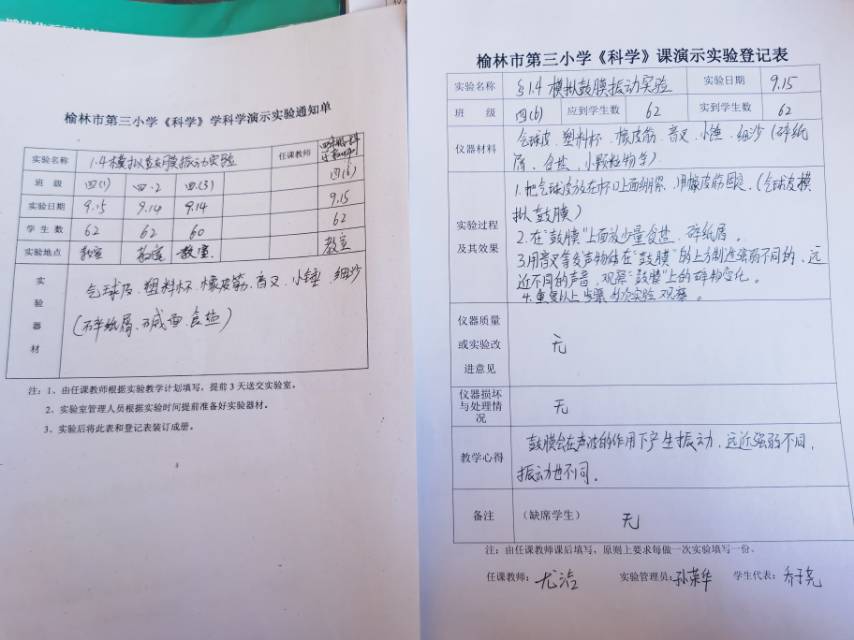 榆林市第三小学《科学》学科演示实验通知单
实验名称 1.4模拟鼓膜振动实验 任课教师
班 级 四(1) 四.2 四(3) 四(6)
实验日期 9.15 9.14 9.14 9.15
学 生 数 62 62 60 62
实验地点 教室 教室 教室 教室
实验器材
气球皮、塑料杯、橡皮筋、音叉、小锤、细沙
(碎纸屑、碱面、食盐)
注：1、由任课教师根据实验教学计划填写，提前3天送交实验室。
2、实验室管理人员根据实验时间提前准备好实验器材。
3、实验后将此表和登记表装订成册。
榆林市第三小学《科学》课演示实验登记表
实验名称 §1.4 模拟鼓膜振动实验 实验日期 9.15
班 级 四(6) 应到学生数 62 实到学生数 62
仪器材料 气球皮、塑料杯、橡皮筋、音叉、小锤、细沙(碎纸
屑、食盐、小颗粒物等)
实验过程及其效果
1.把气球皮放在杯口上面绷紧，用橡皮筋固定。(气球皮模
拟鼓膜)
2.在"鼓膜"上面放少量食盐、碎纸屑。
3.用音叉等发声物体在"鼓膜"的上方制造强弱不同的、远
近不同的声音，观察"鼓膜"上的碎物变化。
4.重复以上步骤，多次实验，观察。
仪器质量
或实验改 无
进意见
仪器损坏
与处理情 无
况
教学心得 鼓膜会在声波的作用下产生振动，远近强弱不同，
振动也不同。
备注 (缺席学生) 无
注：由任课教师课后填写，原则上要求每做一次实验填写一份。
任课教师：尤洁 实验管理员：孙荣华 学生代表：